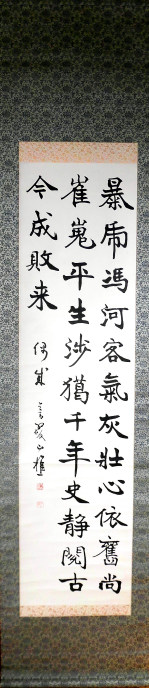 暴虎馮河客氣灰壯心依舊尚
崔嵬平生涉獵千年史靜閱古
今成敗来
偶成